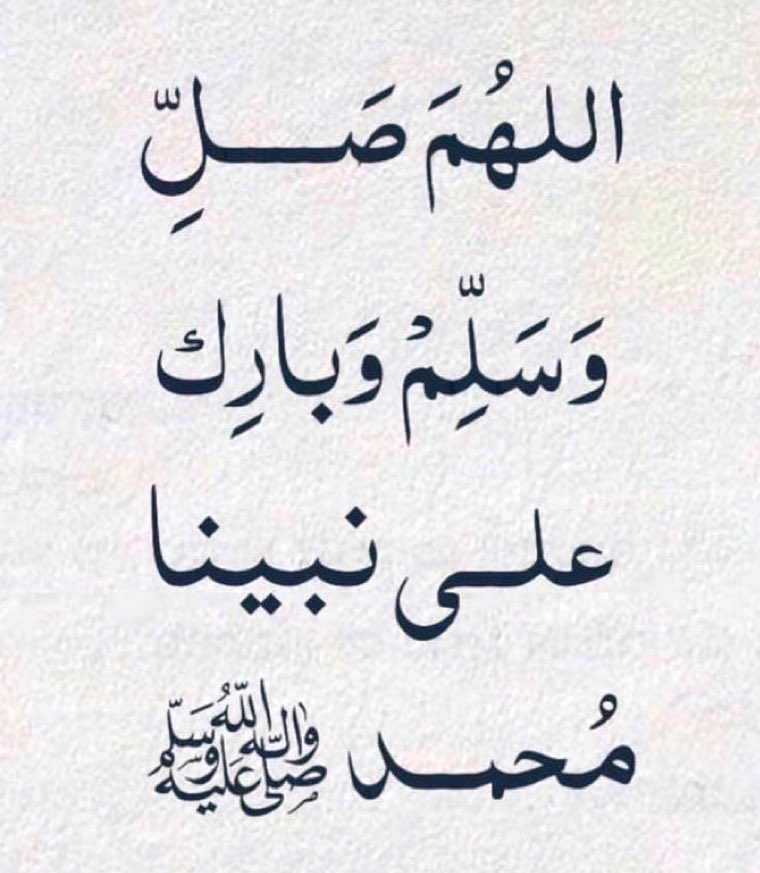 اللهُمَ صَلِّ
وَسَلِّمْ وَبارِك
على نبينا
مُحمد صلى الله عليه واله وسلم